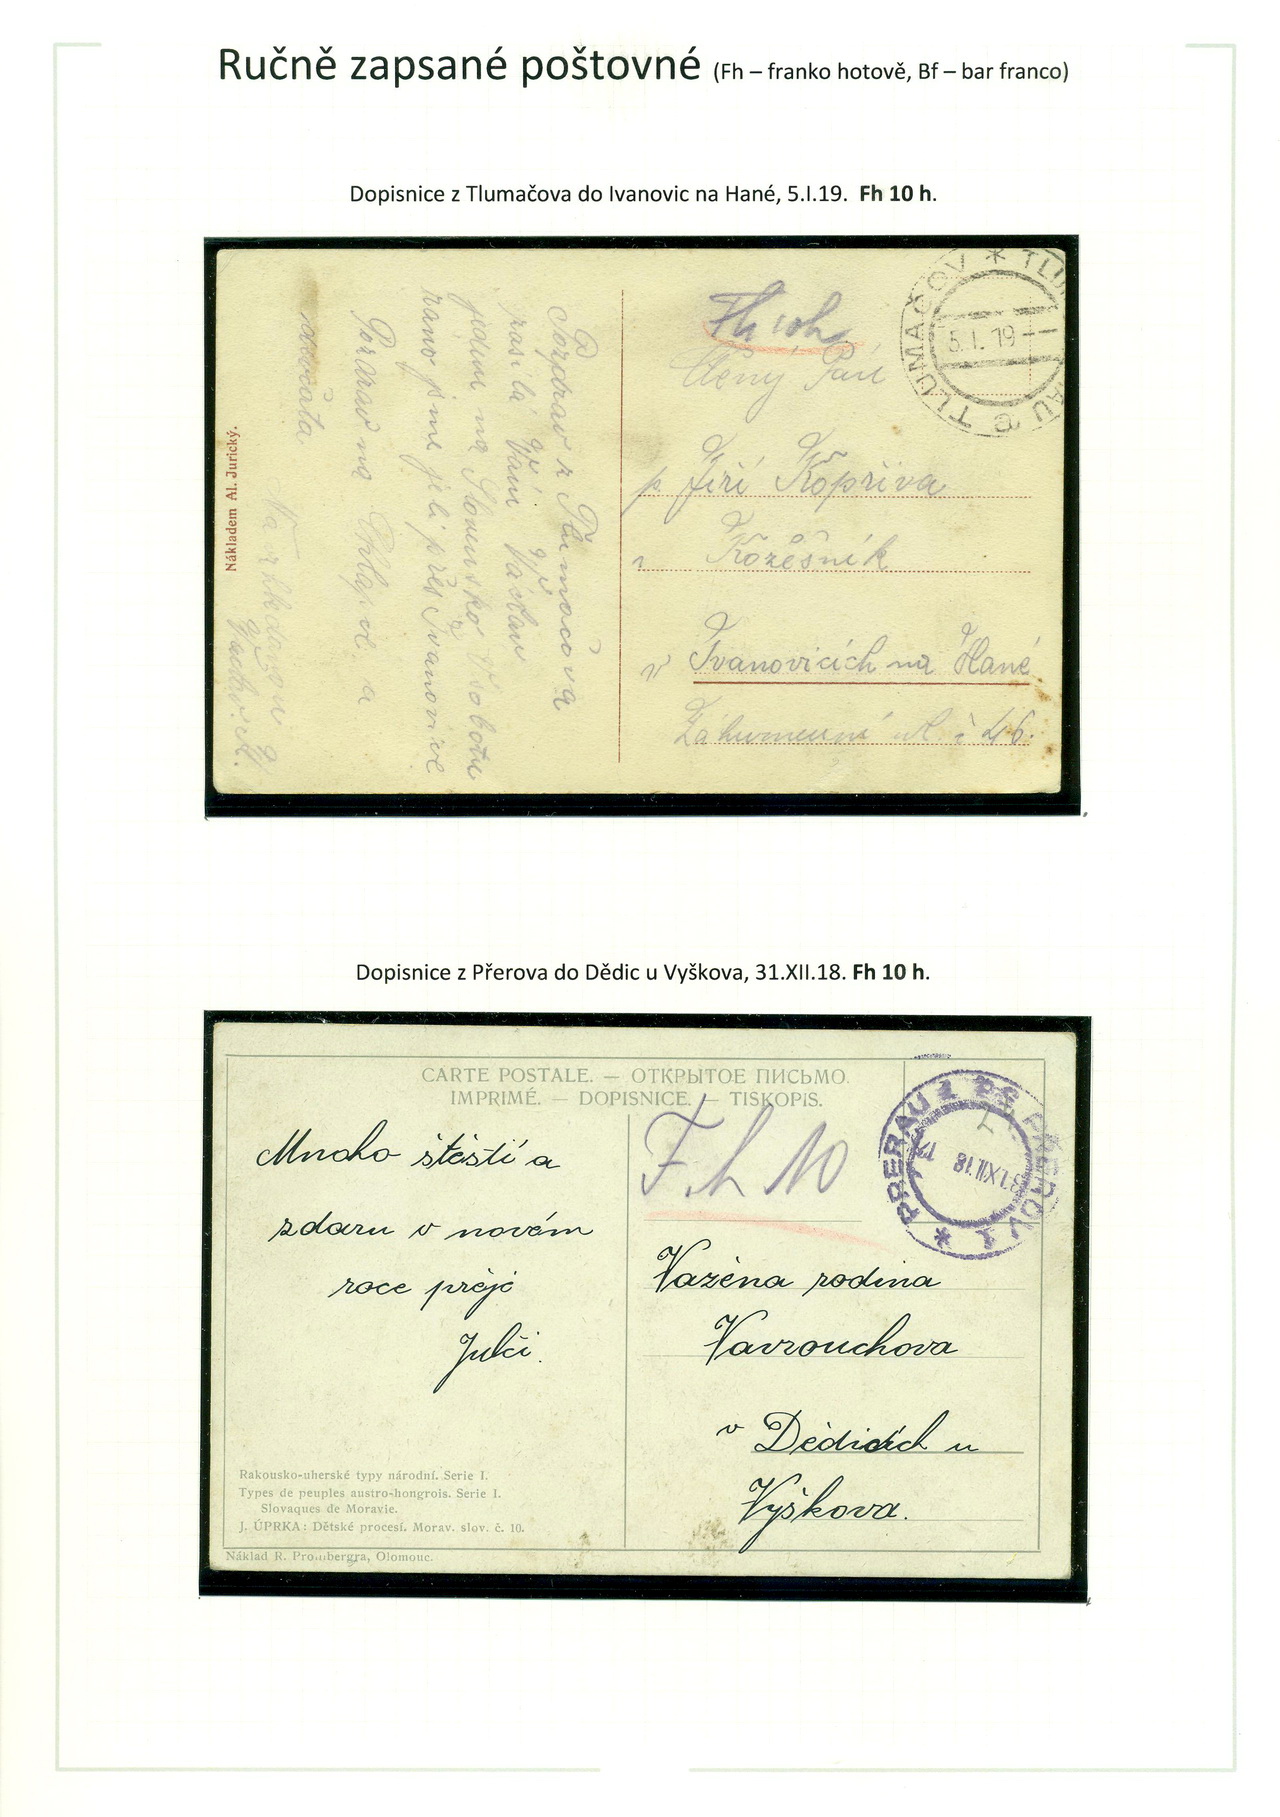 Ručně zapsané poštovné (Fh – franko hotově, Bf – bar franco)
Dopisnice z Tlumačova do Ivanovic na Hané, 5.I.19. Fh 10 h.
Pozdrav z Tlumačova
zasílá Vám Václav
jedem na Slovensko v sobotu
ráno jsme jeli přes Ivanovice
Pozdrav na a
děvčata
Nazhledanou
Václav K.
Nákladem Al. Jurický.
Fh 10h
TLUMAČOV * TLUM AU C
5.I.19
Ctěný Pán
p Jiří Kopřiva
Kožešník
v Ivanovicích na Hané
Záhumenní ul. č 46.
Dopisnice z Přerova do Dědic u Vyškova, 31.XII.18. Fh 10 h.
CARTE POSTALE. — ОТКРЫТОЕ ПИСЬМО.
IMPRIMÉ. — DOPISNICE. — TISKOPIS.
Mnoho štěstí a
zdaru v novém
roce přeje
Julči.
F. h 10
* PRERAU 1 PŘEROV 1
31.XII.18
Vážená rodina
Vavrouchova
v Dědicích u
Vyškova.
Rakousko-uherské typy národní. Serie I.
Types de peuples austro-hongrois. Serie I.
Slovaques de Moravie.
J. ÚPRKA: Dětské procesí. Morav. slov. č. 10.
Náklad R. Prombergra, Olomouc.